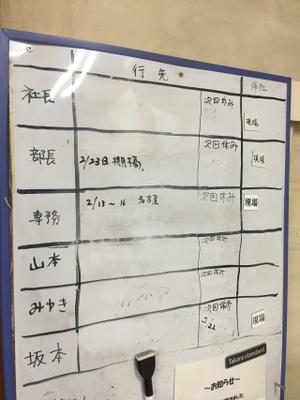 行先
社長
次回休み
現場
部長
2/23日
次回休み
現場
専務
2/13～16 名古屋
次回休み
現場
山本
次回休み
みゆき
次回休み
坂本
次回休み
2/22
現場
Takara standard
～お知らせ～